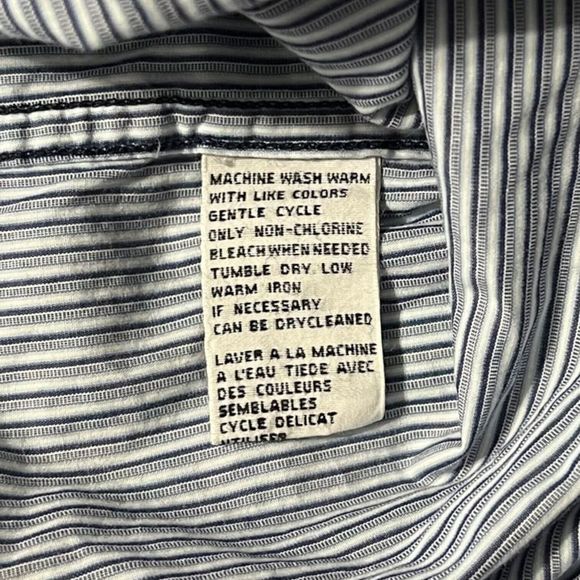 MACHINE WASH WARM
WITH LIKE COLORS
GENTLE CYCLE
ONLY NON-CHLORINE
BLEACH WHEN NEEDED
TUMBLE DRY LOW
WARM IRON
IF NECESSARY
CAN BE DRYCLEANED
LAVER A LA MACHINE
A L'EAU TIEDE AVEC
DES COULEURS
SEMBLABLES
CYCLE DELICAT
UTILISER